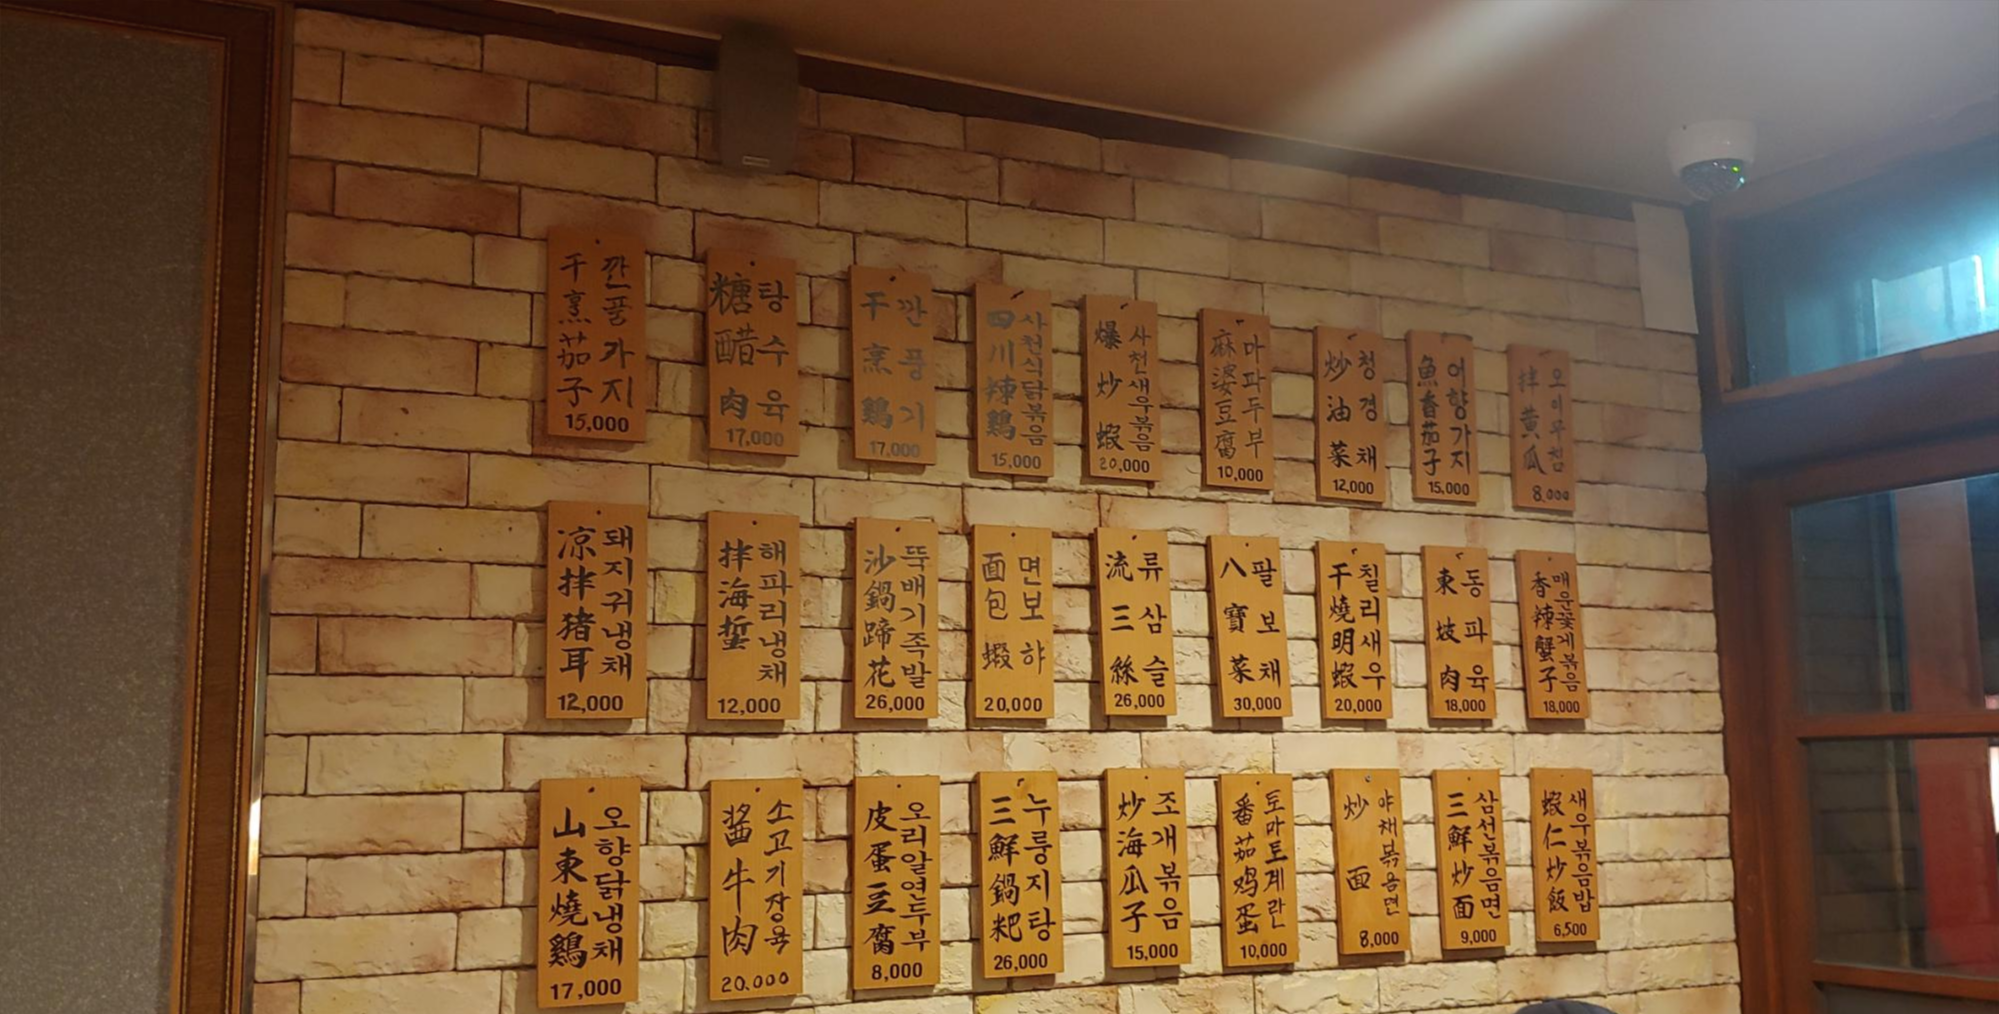 干烹茄子 깐풍가지 15,000
糖醋肉 탕수육 17,000
干烹鷄 깐풍기 17,000
四川辣鷄 사천식닭볶음 15,000
爆炒蝦 사천새우볶음 20,000
麻婆豆腐 마파두부 10,000
炒油菜 청경채 12,000
魚香茄子 어향가지 15,000
拌黄瓜 오이무침 8.000
凉拌猪耳 돼지귀냉채 12,000
拌海蜇 해파리냉채 12,000
沙鍋蹄花 뚝배기족발 26,000
面包蝦 면보하 20,000
流三絲 류삼슬 26,000
八寶菜 팔보채 30,000
干燒明蝦 칠리새우 20,000
東坡肉 동파육 18,000
香辣蟹子 매운꽃게볶음 18,000
山東燒鷄 오향닭냉채 17,000
酱牛肉 소고기장육 20.000
皮蛋豆腐 오리알연두부 8,000
三鮮鍋粑 누룽지탕 26,000
炒海瓜子 조개볶음 15,000
番茄鸡蛋 토마토계란 10,000
炒面 야채볶음면 8,000
三鮮炒面 삼선볶음면 9,000
蝦仁炒飯 새우볶음밥 6,500